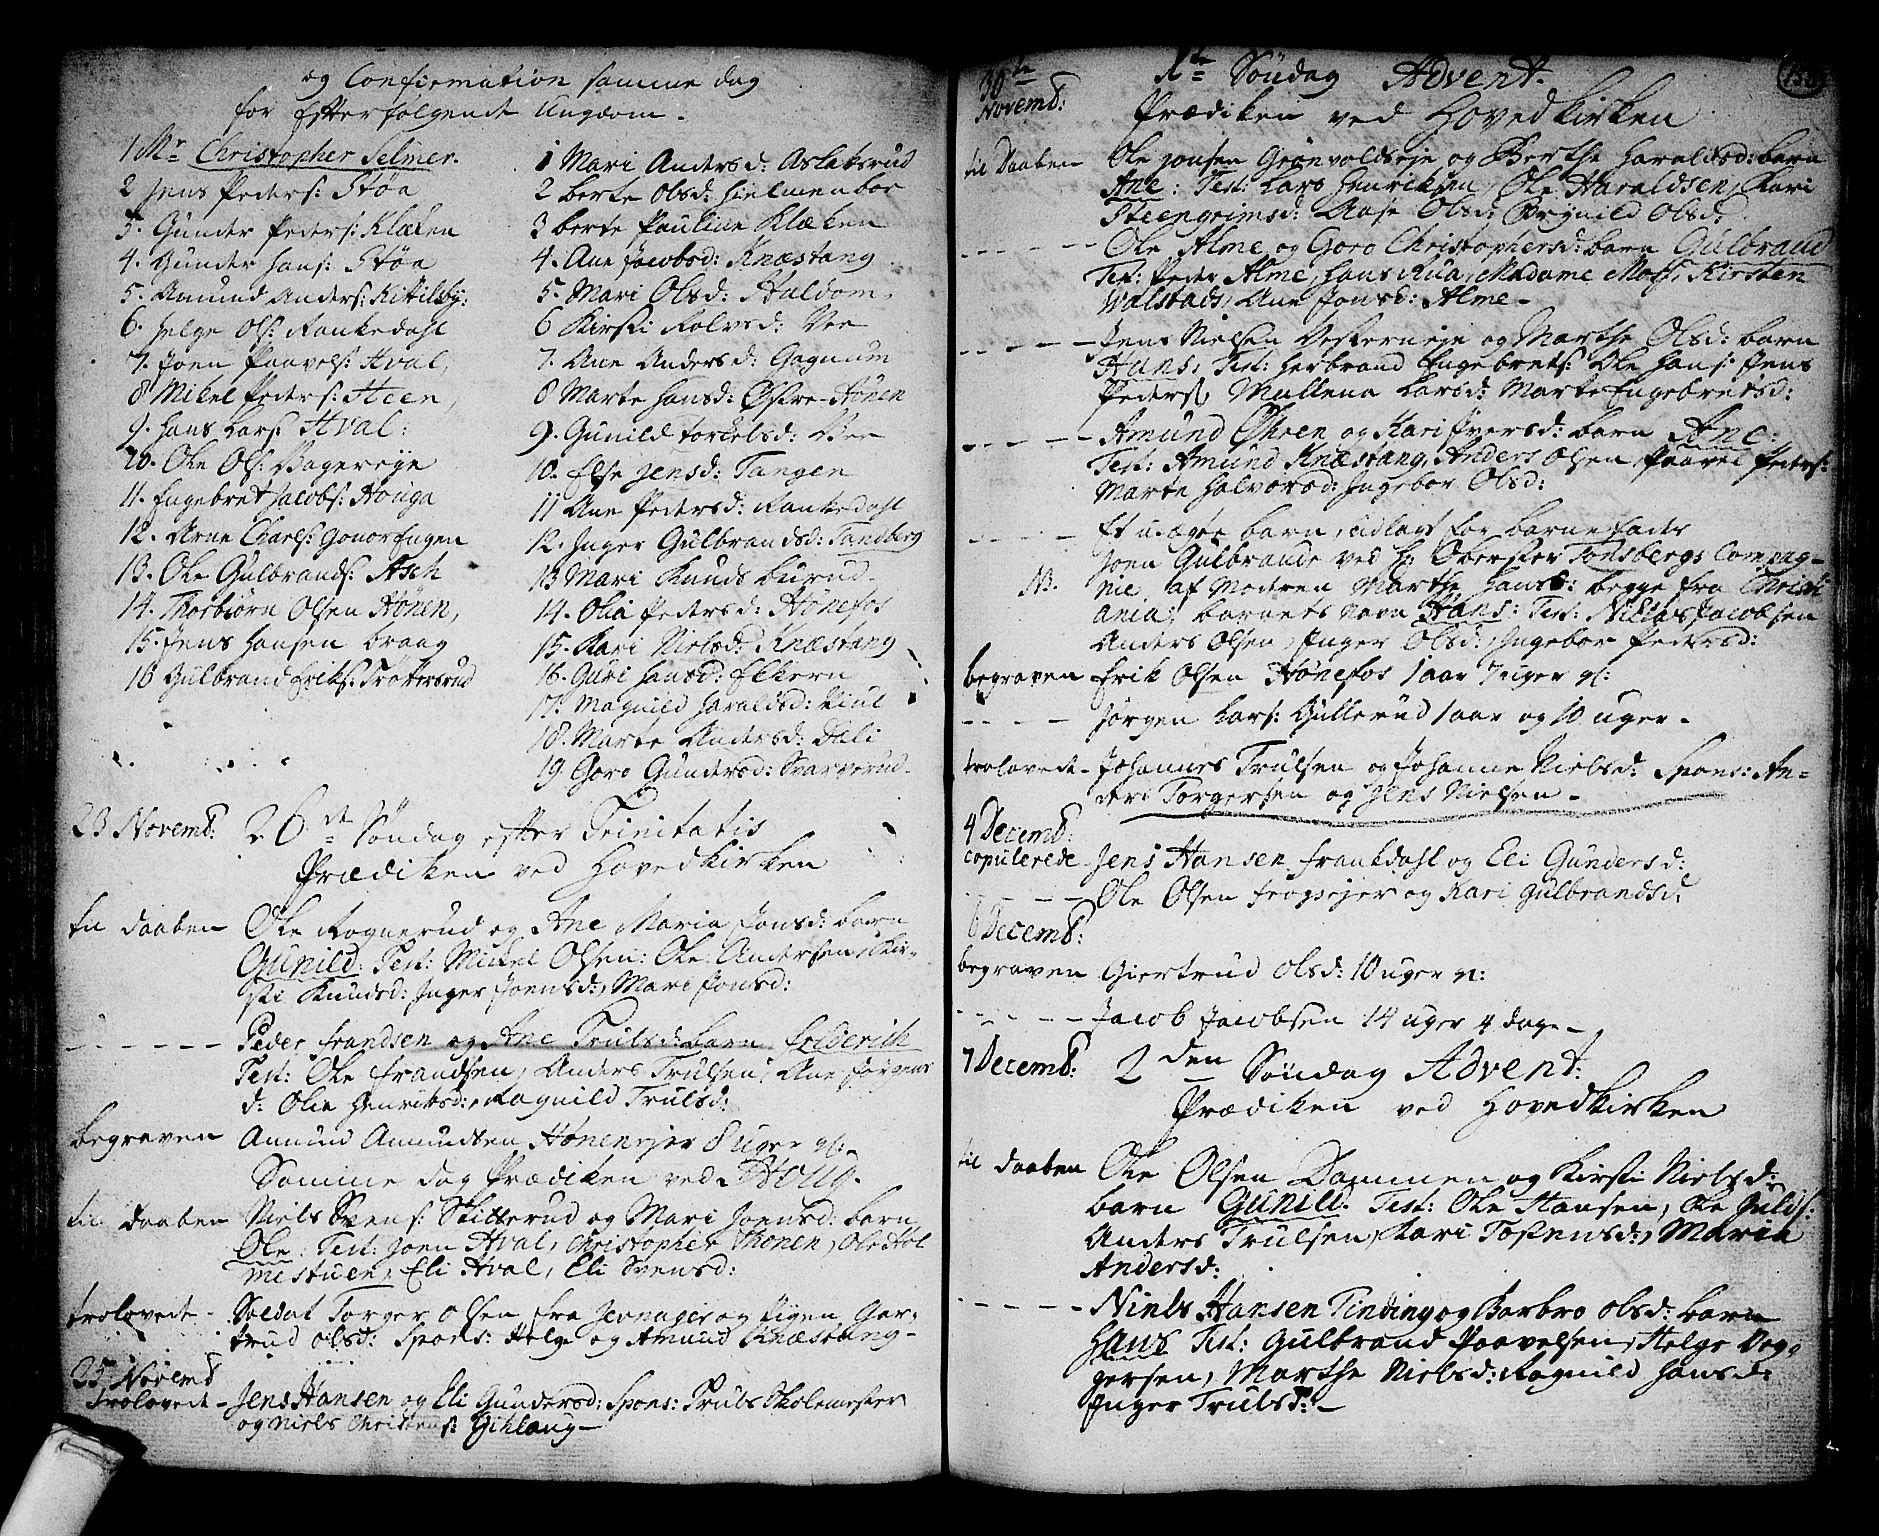 og Confirmation samme dag
for Efterfølgende Ungdom.
1 Mr Christopher Selmer.
2 Jens Peders: Støa
3. Gunder Peders: Klæken
4. Gunder Hans: Støa
5. Amund Anders: Kitilsby:
6. Helge Ols: Rankedahl
7. Joen Paavels: Hval,
8 Mikel Peders: Heen,
9. Hans Lars: Hval:
10. Ole Ols: Bagereye
11. Engebret Jacobs: Houga
12. Arne Charls: GonorEngen
13. Ole Gulbrands: Ask
14. Thorbiørn Olsen Hønen,
15. Jens Hansen Braag
16 Gulbrand Eriks: Trøtersrud
1 Mari Andersd: Aslaksrud
2 berte Olsd: Hielmenboe
3 berte Pauline Klæken
4. Ane Jacobsd: Knæstang
5. Mari Olsd: Huldom,
6 Kirsti Rolvsd: Vee
7. Ane Andersd: Gagnum
8 Marte Hansd: Østre-Hønen
9. Gunild Torkelsd: Vee
10. Else Jensd: Tangen
11 Ane Pedersd: Rankedahl
12. Inger Gulbrandsd: Tandberg
13 Mari Knuds Burud.
14. Olia Pedersd: Hønefos
15. Kari Nielsd: Knæstang
16. Guri Hansd: Elkern
17. Magnild Haraldsd: Kiul
18. Marte Andersd: Dæli
19. Goro Gundersd: Svarverud.
23 Novemb: 26de Søndag efter Trinitatis
Prædiken ved Hovedkirken
til daaben Ole Rognerud og Ane Maria Jonsd: barn
Gunild. Test: Mickel Olsen: Ole Andersen, Kir-
sti Knudsd: Inger Joensd:, Mari Jonsd:
- - - - - - Peder Frandsen og Ane Trulsd: barn Friderich
Test: Ole Frandsen, Anders Trulsen, Ane Jørgens
d: Olia Henriksd:, Ragnild Trulsd:
begraven Amund Amundsen Hønenejer 8 uger gl:
Samme dag Prædiken ved Houg.
til daaben Niels Svens: Skitterud og Mari Joensd: barn
Ole: Test: Joen Hval, Christopher Thonen, Ole Hol
mestuen, Eli Hval, Eli Svensd:
trolovede - Soldat Torger Olsen fra Jevnager og Pigen Gier-
trud Olsd: Spons: Helge og Amund Knæstang-
25 Novemb
trolovede - Jens Hansen og Eli Gundersd: Spons: Truls Skolemester
og Niels Christens: Gihlaug-
30te
Novemb: 1te Søndag Advent.
Prædiken ved Hovedkirken
til daaben Ole Jonsen Grønvoldseje og Berthe Haraldsd: barn
Ane: Test: Lars Henriksen, Ole Haraldsen, Kari
Steengrimsd: Aase Olsd: Brynild Olsd:
- - - - Ole Alme og Goro Christophersd: barn Gulbrand
Test: Peder Alme, Hans Rua, Madame Moss, Kirsten
Walstads, Ane Jonsd: Alme-
- - - - Jens Nielsen Veskerneje og Marthe Olsd: barn
Hans, Test: Herbrand Engebrets: Ole Hans: Jens
Peders, Mallena Larsd: Marte Engebretsd:
- - - - Amund Øhren og Kari Iversd: barn Ane:
Test: Amund Knæstang, Anders Olsen, Paavel Peders:
Marte Halvorsd: Ingebor Olsd:
- - - - Et u-ægte barn, udlagt for barnefader
Joen Gulbrands ved H: Oberster Tonsbergs Compag-
NB. nie, af Moderen Marthe Hansd: begge fra Christi
ania; barnets navn Hans: Test: Niklas Jacobsen
Anders Olsen, Inger Olsd: Ingebor Pedersd:
begraven Erik Olsen Hønefos 1 aar 7 uger gl:
- - - - Jørgen Lars: Gullerud 1 aar og 10 uger-
trolovede- Johannes Trulsen og Johanne Nielsd: Spons: An-
ders Torgersen og Jens Nielsen -
4 Decemb:
copulerede Jens Hansen Frankdahl og Eli Gundersd:
- - - - Ole Olsen Frogsejer og Kari Gulbrandsd:
6 Decemb:
begraven Giertrud Olsd: 10 uger gl:
- - - - Jacob Jacobsen 14 uger 4 dage-
7 Decemb: 2den Søndag Advent:
Prædiken ved Hovedkirken
til daaben Ole Olsen Dammen og Kirsti Nielsd:
barn Gunild. Test: Ole Hansen, Ole Gulds:
Anders Trulsen, Kari Tostensd:, Maria
Andersd:
- - - - Niels Hansen Tinding og Barbro Olsd: barn
Hans Test: Gulbrand Paavelsen, Helge Veg-
gersen, Marthe Nielsd: Ragnild Hansd:
Inger Trulsd: -